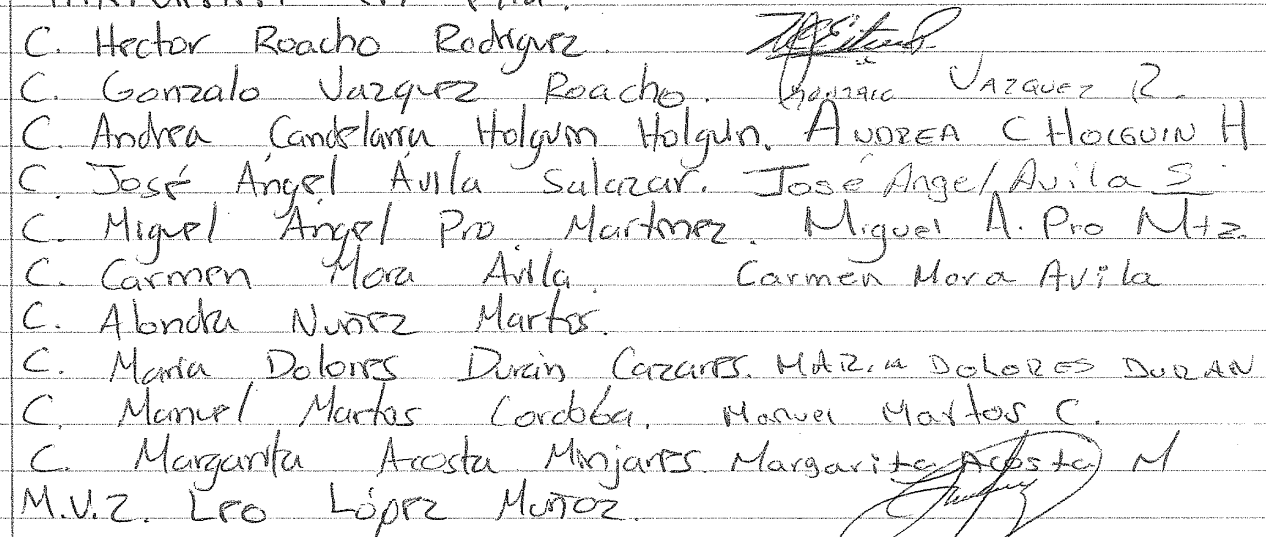 C. Hector Roacho Rodriguez.
C. Gonzalo Vazquez Roacho. Gonzalo Vazquez R.
C. Andrea Candelaria Holguin Holguin. Andrea C Holguin H
C. José Ángel Ávila Salazar. José Angel Avila S
C. Miguel Ángel Pro Martinez. Miguel A. Pro Mtz.
C. Carmen Mora Avila. Carmen Mora Avila
C. Alondra Nuñez Martos.
C. María Dolores Durán Cazares. MARIA DOLORES DURAN
C. Manuel Martos Cordoba. Manuel Martos C.
C. Margarita Acosta Minjares. Margarita Acosta M
M.V.Z. Leo López Muñoz.